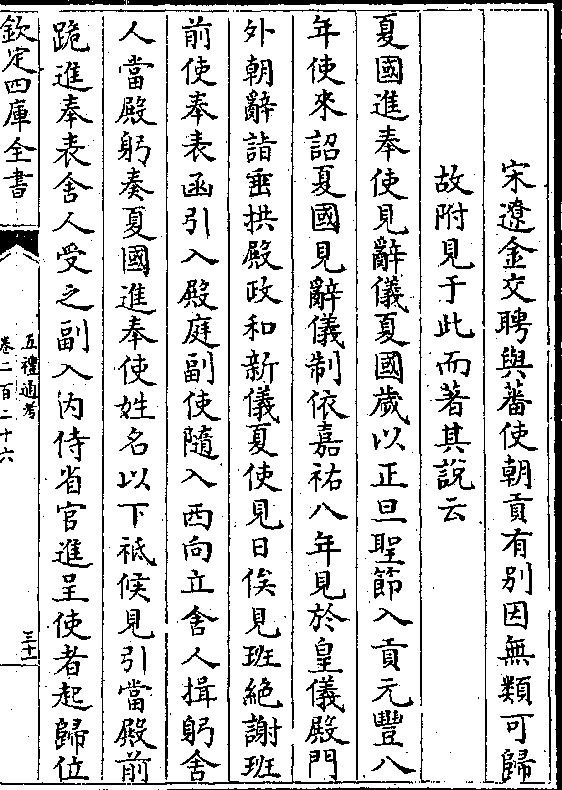 宋遼金交聘與蕃使朝貢有别因無類可歸
故附見于此而著其說云
夏國進奉使見辭儀夏國歲以正旦聖節入貢元豐八
年使來詔夏國見辭儀制依嘉祐八年見於皇儀殿門
外朝辭詣垂拱殿政和新儀夏使見日俟見班絶謝班
前使奉表函引入殿庭副使隨入西向立舍人揖躬舍
人當殿躬奏夏國進奉使姓名以下祗候見引當殿前
跪進奉表舍人受之副入内侍省官進呈使者起歸位
欽定四庫全書
五禮通考
卷二百二十六
三十一